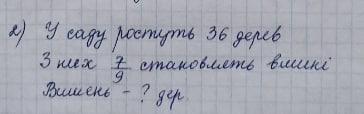 2) У саду ростуть 36 дерев
З них 7/9 становлять вишні
Вишень - ? дер.